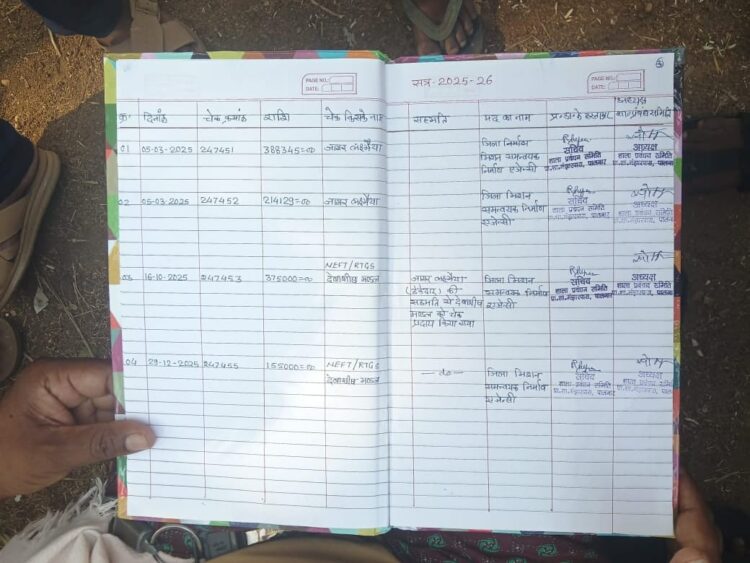 PAGE NO.:
DATE:
सत्र-2025-26
PAGE NO.:
DATE:
क्र. दिनांक चेक क्रमांक राशि चेक किसके नाम सहमति मद का नाम अध्यक्ष
01 05-03-2025 247451 388345=00 जिला निर्माण
मिशन समन्वयक
निर्माण एजेन्सी
सचिव
शाला प्रबंधन समिति
अध्यक्ष
शाला प्रबंधन समिति
02 05-03-2025 247452 214129=00 जिला मिशन
समन्वयक निर्माण
एजेन्सी
सचिव
शाला प्रबंधन समिति
अध्यक्ष
शाला प्रबंधन समिति
NEFT/RTGS
03 16-10-2025 247453 375000=00 देवाशीष मण्डल
(ठेकेदार) की
सहमति से देवाशीष
मण्डल को चेक
प्रदाय किया गया
जिला मिशन
समन्वयक निर्माण
एजेन्सी
सचिव
शाला प्रबंधन समिति
अध्यक्ष
शाला प्रबंधन समिति
04 29-12-2025 247455 155000=00 NEFT/RTGS
देवाशीष मण्डल
—do—
जिला मिशन
समन्वयक निर्माण
एजेन्सी
सचिव
शाला प्रबंधन समिति
अध्यक्ष
शाला प्रबंधन समिति